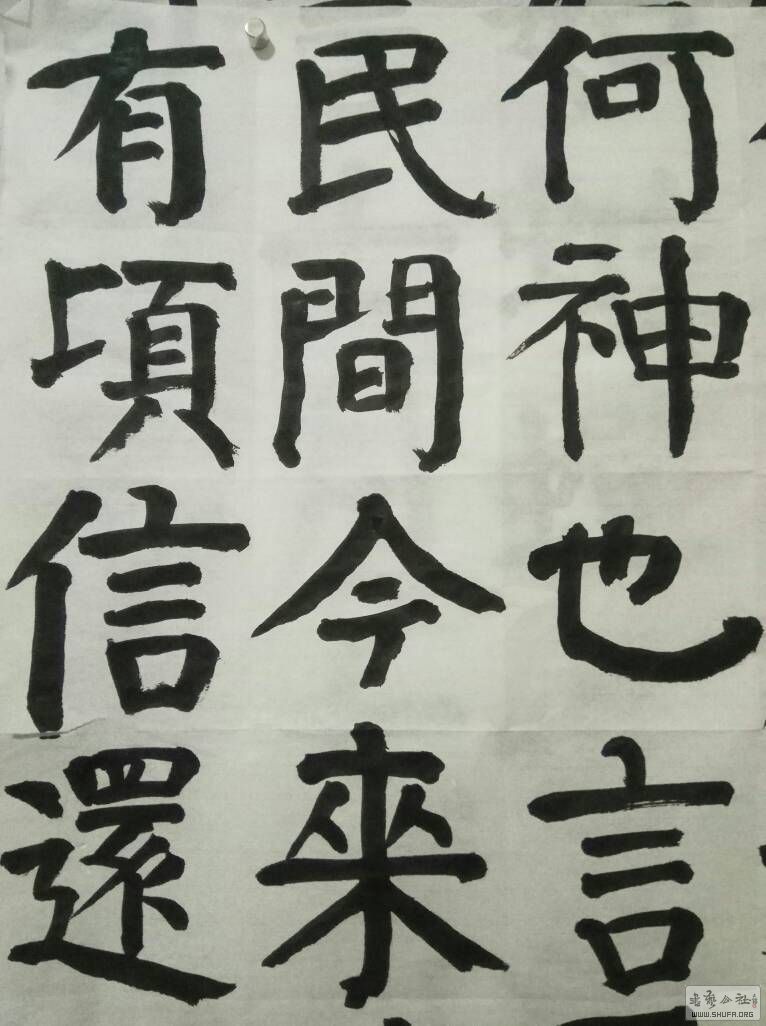 何神也言
民間今來
有頃信還
書藝公社
WWW.SHUFA.ORG